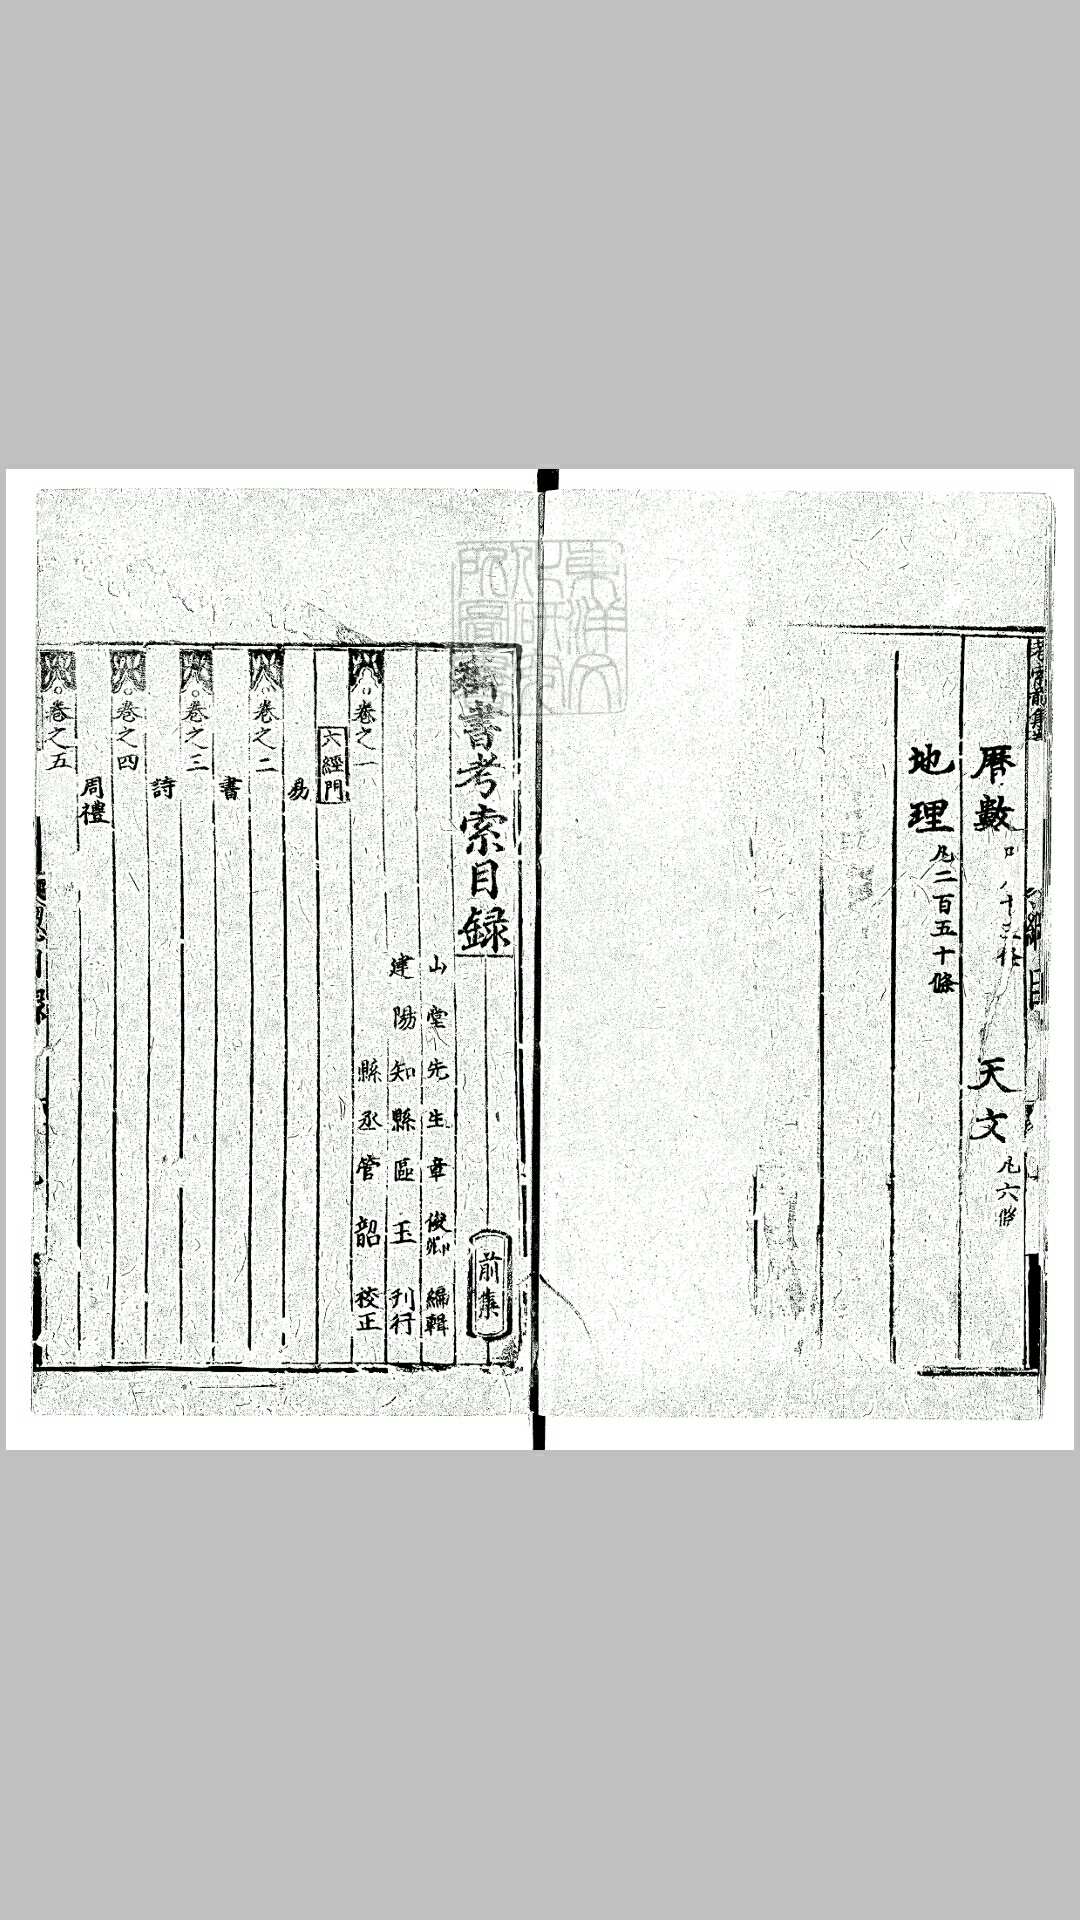 曆數 天文凡六條
地理凡二百五十條
群書考索目録 前集
山堂先生章俊卿編輯
建陽知縣區玉刊行
縣丞管韶校正
卷之一
六經門
易
卷之二
書
卷之三
詩
卷之四
周禮
卷之五